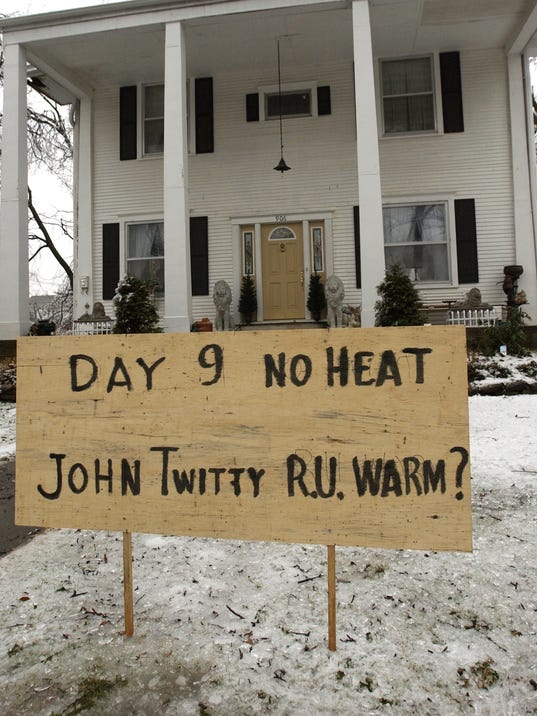 906
DAY 9 NO HEAT
JOHN TWITTY R.U. WARM?